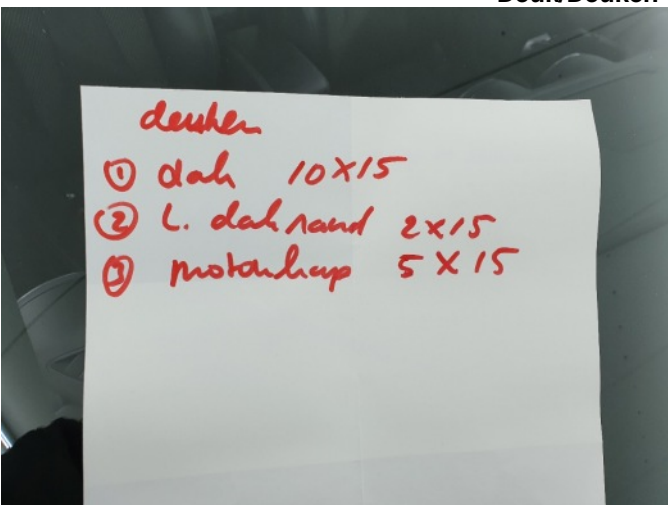 deuken
① dak 10x15
② L. dakrand 2x15
③ motorkap 5x15